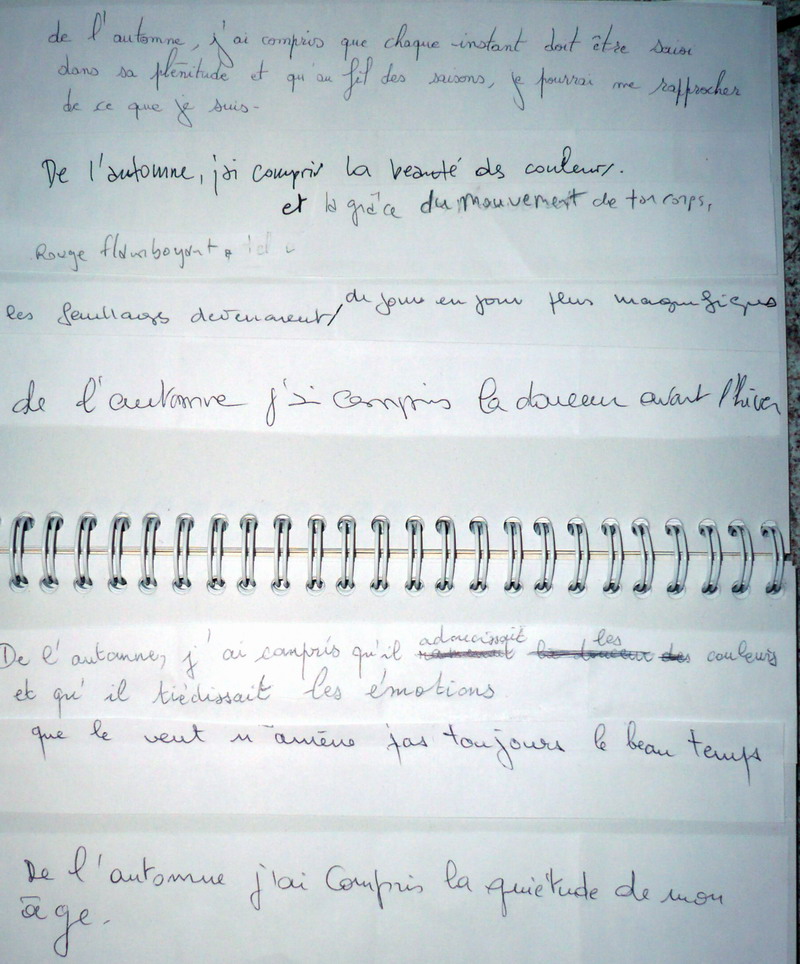 de l'automne, j'ai compris que chaque instant doit être saisi
dans sa plénitude et qu'au fil des saisons, je pourrai me rapprocher
de ce que je suis -
De l'automne, j'ai compris la beauté des couleurs.
et la grâce du mouvement de ton corps,
Rouge flamboyant
les feuillages devenaient/de jour en jour plus magnifiques
de l'automne j'ai compris la douceur avant l'hiver
De l'automne, j'ai compris qu'il adoucissait les couleurs
et qu'il tiédissait les émotions
que le vent n'amène pas toujours le beau temps
De l'automne j'ai compris la quiétude de mon
âge.